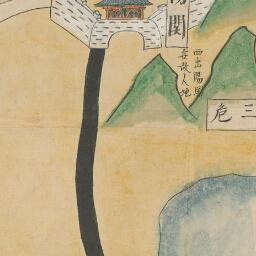 陽関
西出陽関
無故人地
三危